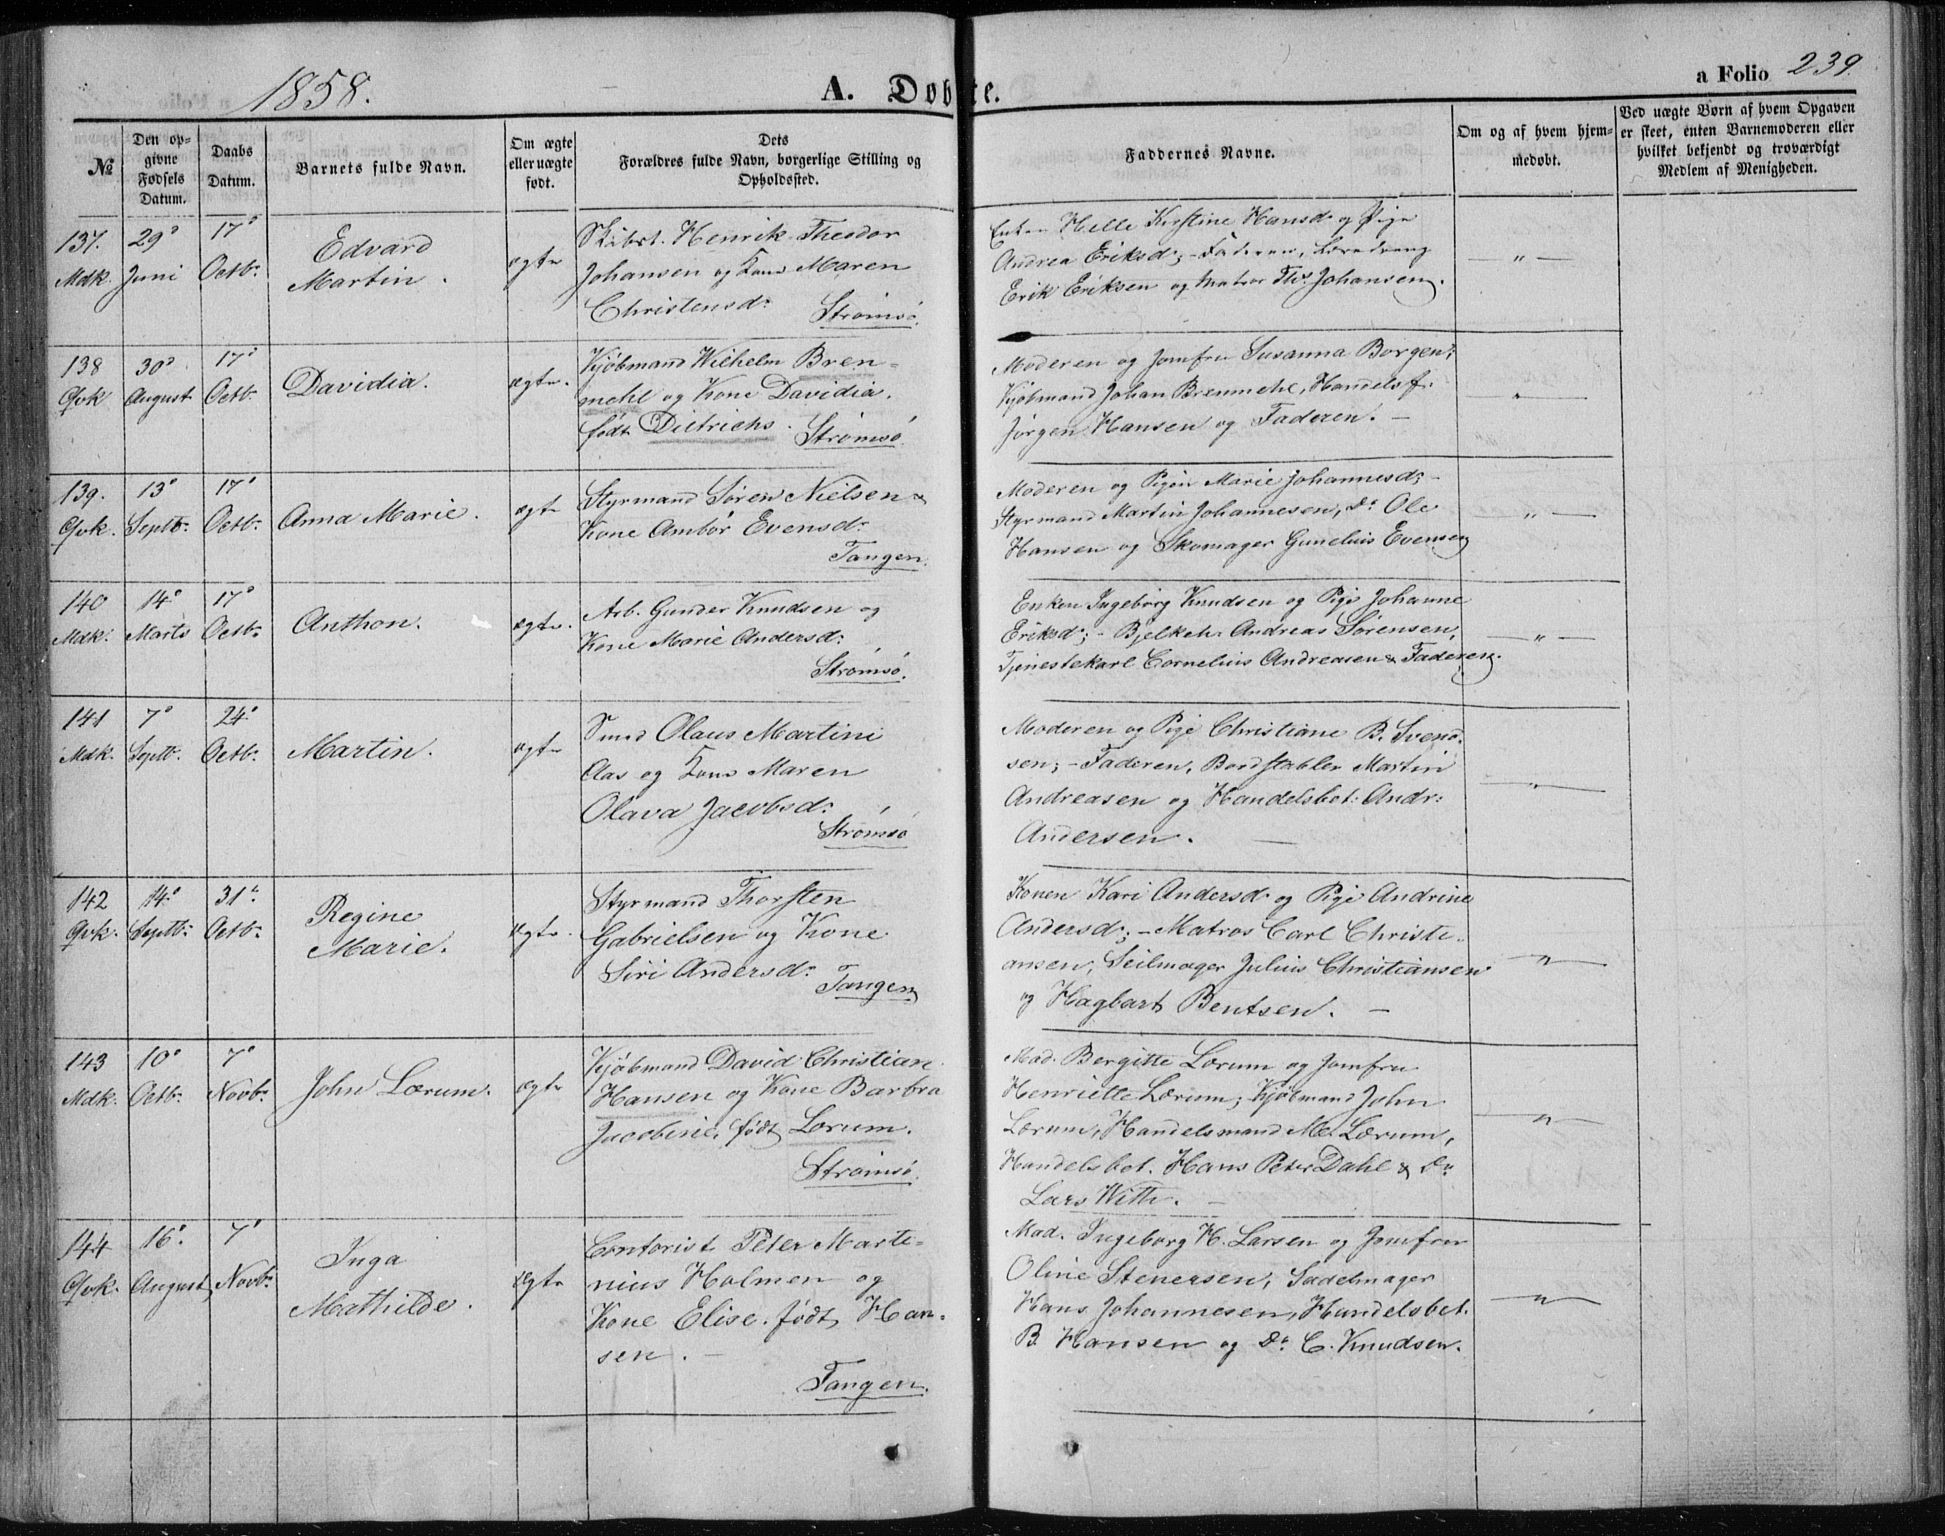 1858.
A. Døbte.
a Folio 239.
№
Den opgivne Fødsels Datum.
Daabs Datum.
Barnets fulde Navn.
Om ægte eller uægte født.
Dets Forældres fulde Navn, borgerlige Stilling og Opholdssted.
Faddernes Navne.
Om og af hvem hjemmedøbt.
Ved uægte Børn af hvem Opgaven er skeet, enten Barnemoderen eller hvilket bekjendt og troværdigt Medlem af Menigheden.
137. Mdk.
29° Juni
17° Octbr
Edvard
Martin.
ægte
Henrik Theodor
Johansen og Kone Maren
Christensdr
Strømsö.
Enken Helle Kirstine Hansdr og Pige
Andrea Eriksdr; - Faderen,
Erik Eriksen og Matros Johansen.
— " —
138 Qvk
30° August
17° Octb.
Davidia.
ægte.
Kjöbmand Wilhelm Brem-
mehl og Kone Davidia,
födt Dietrichs. Strömsö.
Moderen og Jomfru Susanna Borgen;
Kjöbmand Johan Bremmehl, Handelsf.
Jörgen Hansen og Faderen. —
— " —
139. Qvk.
13° Septb.
17° Octbr.
Anna Marie.
ægte
Styrmand Sören Nielsen &
Kone Ambör Evensdr
Tangen.
Moderen og Pigen Marie Johannesdr; -
Styrmand Martin Johannesen, Do Ole
Hansen og Skomager Gunelius Evensen
— " —
140 Mdk.
14° Marts
17° Octb.
Anthon.
ægte.
Arb. Gunder Knudsen og
Kone Marie Andersdr
Strömsö.
Enken Ingebörg Knudsen og Pige Johanne
Eriksdr; - Bjelkeh. Andreas Sörensen,
Tjenestekarl Cornelius Andreasen & Faderen.
— " —
141 Mdk.
7° Septb.
24° Octb.
Martin.
ægte
Smed Olaus Martini
Aas og Kone Maren
Olava Jacobsdr
Strömsö
Moderen og Pige Christiane B. Svend-
sen; - Faderen, Bordstabler Martin
Andreasen og Handelsbet: Andr:
Andersen. —
— " —
142 Qvk.
14° Septb.
31° Octbr.
Regine
Marie.
ægte.
Styrmand Thorsten
Gabrielsen og Kone
Siri Andersdr
Tangen
Konen Kari Andersdr og Pige Andrine
Andersdr; - Matros Carl Christi-
ansen, Seilmager Julius Christiansen
og Hagbart Bentsen. —
— " —
143 Mdk.
10° Octbr.
7° Novbr.
John Lærum.
ægte
Kjöbmand David Christian
Hansen og Kone Barbra
Jacobine, födt Lærum.
Strömsö.
Mad. Bergitte Lærum og Jomfru
Henriette Lærum; Kjöbmand John
Lærum, Handelsmand M. Lærum,
Handelsbet. Hans Peter Dahl & Do
Lars Witth. —
— " —
144 Qvk.
16° August
7° Novbr.
Inga
Mathilde.
ægte
Contorist Peter Marti-
nius Holmen og
Kone Elise födt Han-
sen. —
Tangen.
Mad. Ingeborg H. Larsen og Jomfru
Oline Stenersen, Sadelmager
Hans Johannesen, Handelsbet.
B. Hansen og Do C. Knudsen.
— " —